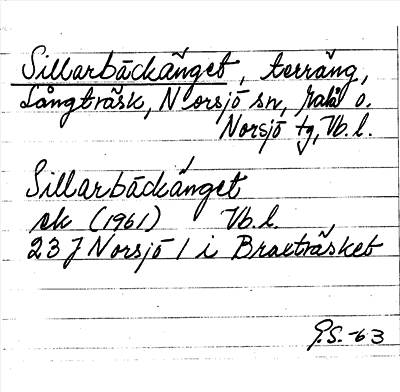 Sillarbäckänget, terräng,
Långträsk, Norsjö sn, Malå o.
Norsjö tg, Vb.l.
Sillarbäckänget
ek (1961) Vb.l.
23 J Norsjö 1 i Braxträsket
G.S. -63